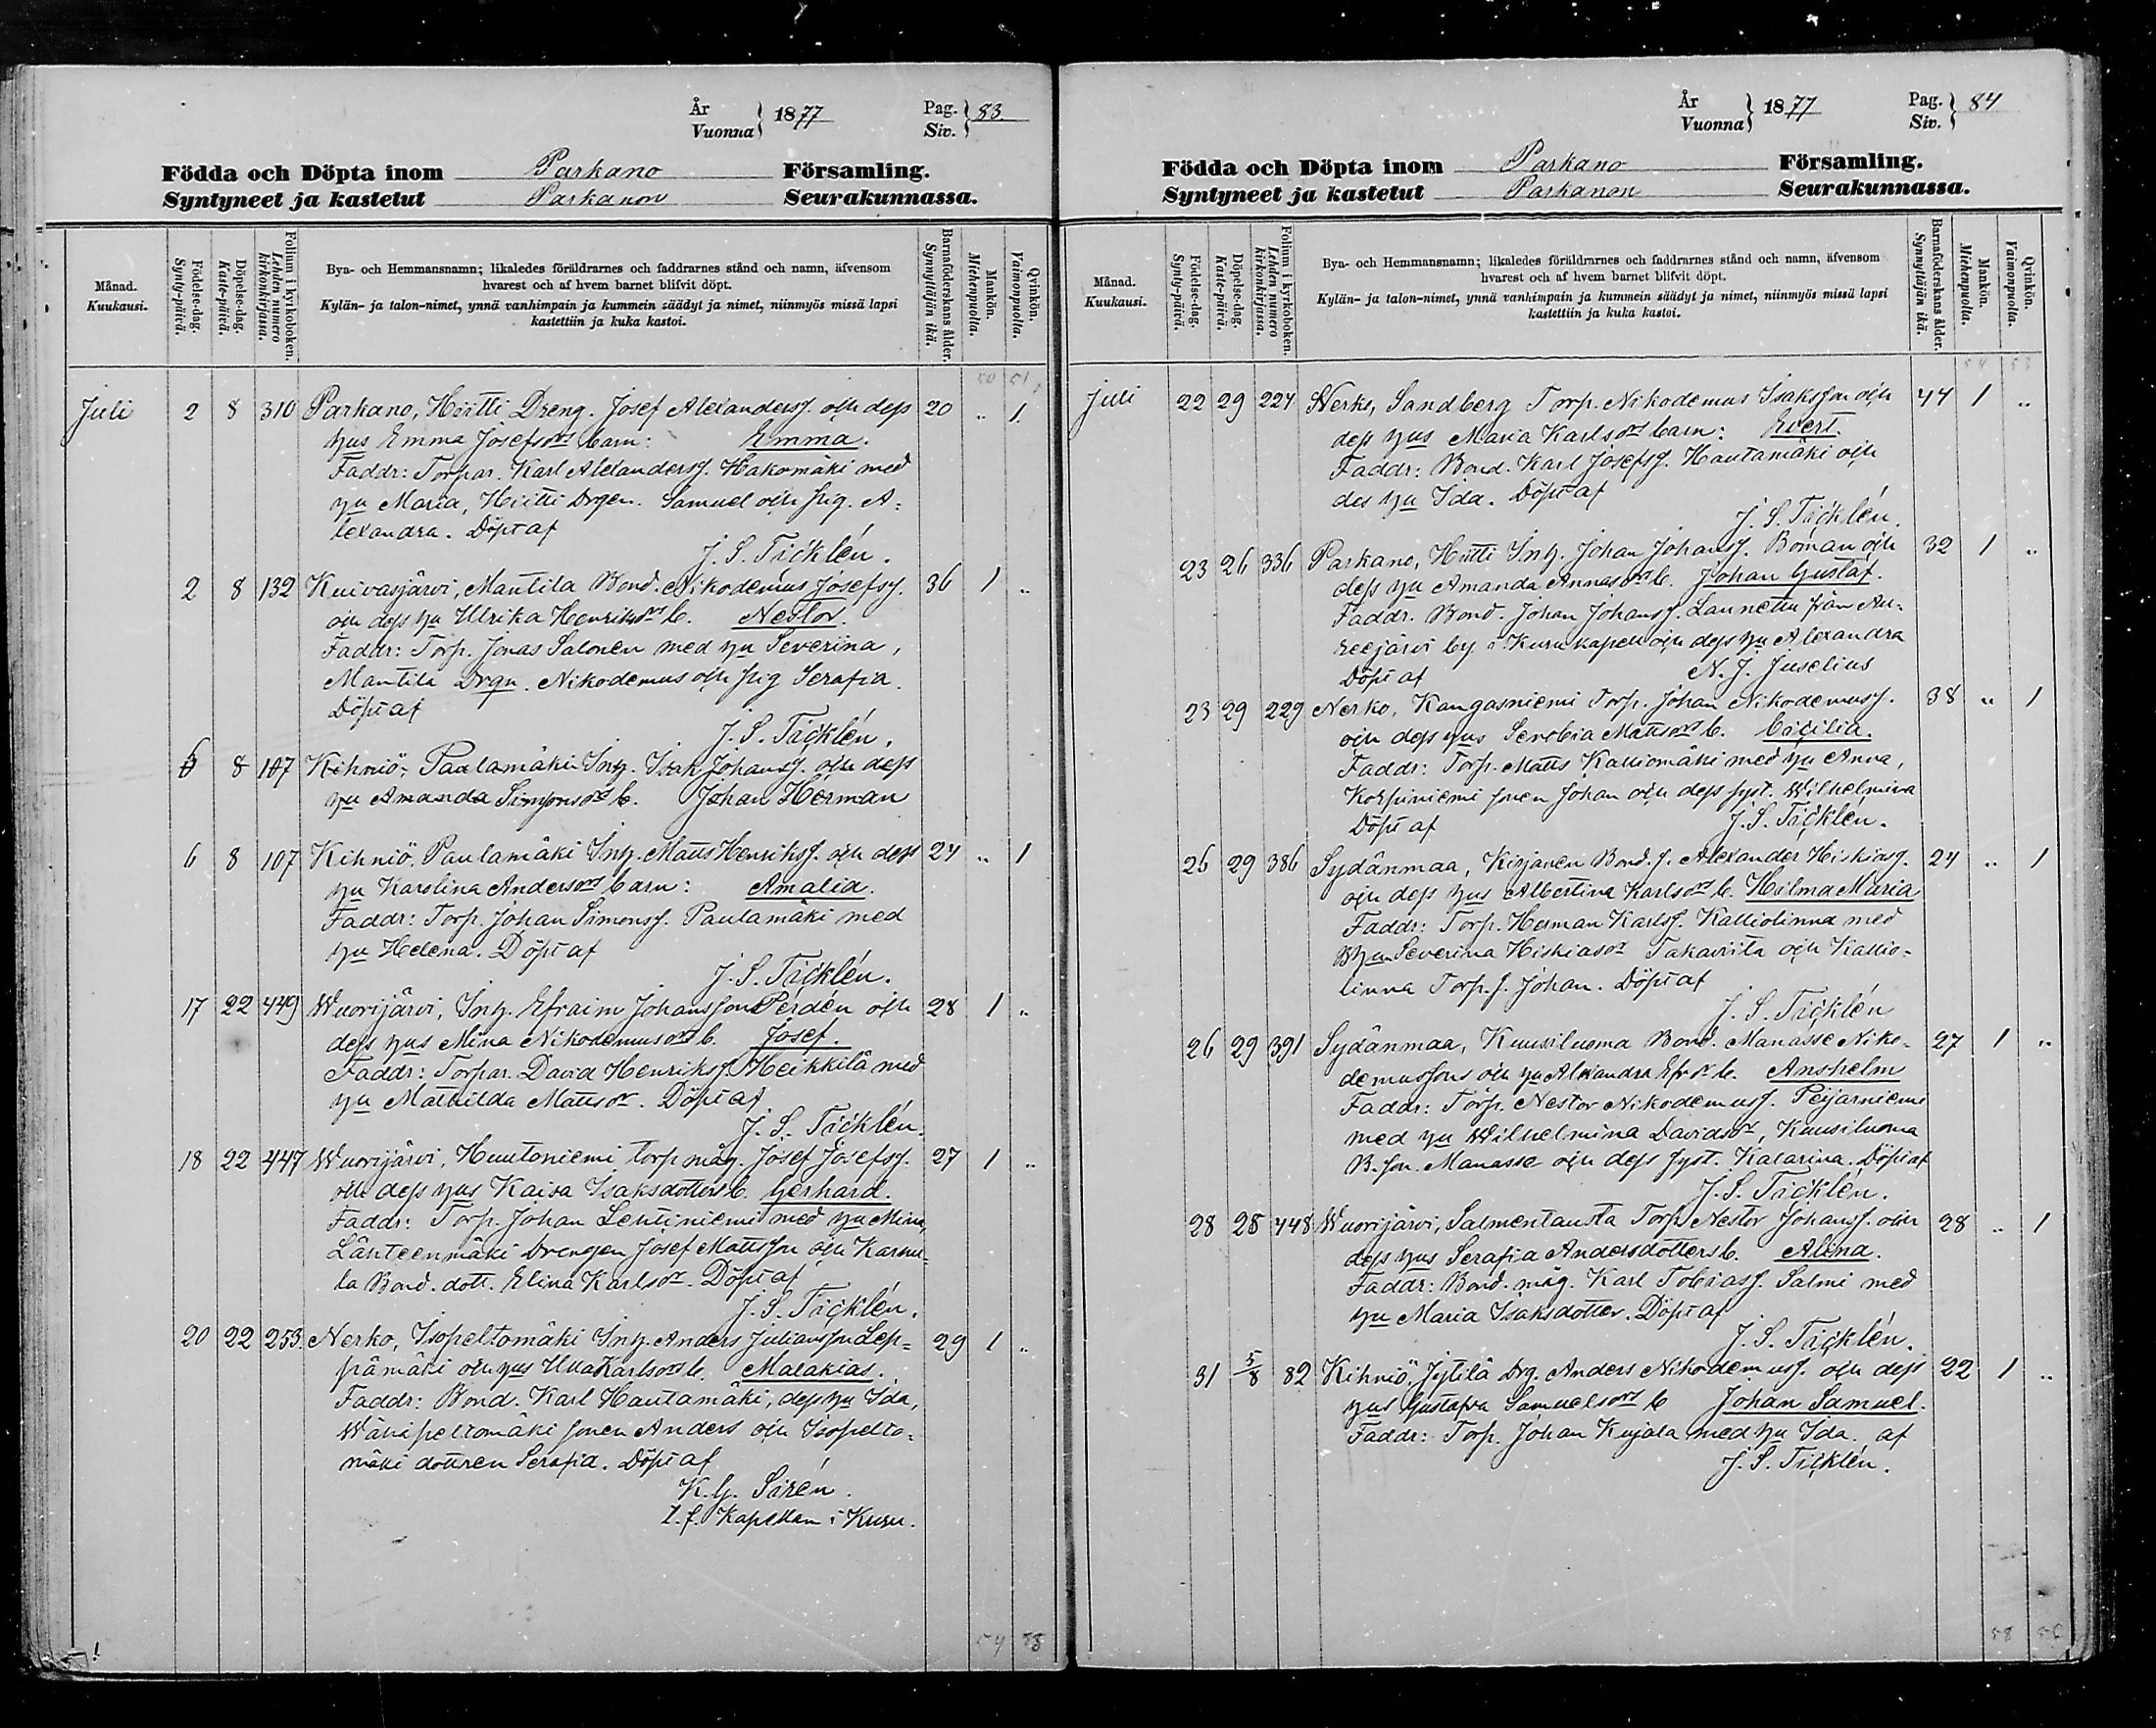 År
Vuonna } 1877 Pag.
Siv. } 83
Födda och Döpta inom Parkano Församling.
Syntyneet ja kastetut Parkanon Seurakunnassa.
Månad.
Kuukausi.
Födelse-dag.
Synty-päivä.
Döpelse-dag.
Kaste-päivä.
Folium i kyrkoboken.
Lehden numero
kirkonkirjassa.
Bya- och Hemmansnamn; likaledes föräldrarnes och faddrarnes stånd och namn, äfvensom
hvarest och af hvem barnet blifvit döpt.
Kylän- ja talon-nimet, ynnä vanhimpain ja kummein säädyt ja nimet, niinmyös missä lapsi
kastettiin ja kuka kastoi.
Barnaföderskans ålder.
Synnyttäjän ikä.
Mankön.
Miehenpuolla.
Qvinkön.
Vaimonpuolla.
50 51
Juli 2 8 310 Parkano, Hiitti Dreng. Josef Alexandersf. och dess 20 .. 1
hus Emma Josefsdrs barn: Emma.
Faddr: Torpar. Karl Alexandersf. Hakomäki med
hu Maria, Hiitti Drgen. Samuel och pig. A=
lexandra. Döpt af
J. S. Täcklén.
2 8 132 Kuivasjärvi, Mantila Bond. Nikodemus Josefsf. 36 1 ..
och dess hu Ulrika Henriksdrs b. Nestor.
Faddr: Torp. Jonas Salonen med hu Severiina,
Mantila Drgn. Nikodemus och pig Serafia.
Döpt af
J. S. Täcklén.
6 8 107 Kihniö, Paulamäki Inh. Isak Johansf. och dess
hu Amanda Simonsdrs b. Johan Herman
6 8 107 Kihniö, Paulamäki Inh. Matts Henriksf. och dess 24 .. 1
hu Karolina Andersdrs barn: Amalia.
Faddr: Torp. Johan Simonsf. Paulamäki med
hu Helena. Döpt af
J. S. Täcklén.
17 22 449 Wuorijärvi, Inh. Efraim Johansson Perdén och 28 1 ..
dess hus Mina Nikodemusdrs b. Josef.
Faddr: Torpar. David Henriksf. Heikkilä med
hu Mathilda Mattsdr. Döpt af
J. S. Täcklén.
18 22 447 Wuorijärvi, Huutoniemi torp måg. Josef Josefsf. 27 1 ..
och dess hus Kaisa Isaksdotters b. Gerhard.
Faddr: Torp. Johan Lehtiniemi med hu Mina,
Länteenmäki Drengen Josef Mattsson och Karme=
la Bond. dott. Elina Karlsdr. Döpt af
J. S. Täcklén.
20 22 253. Nerko, Isopeltomäki Inh. Anders Juliansson Lep= 29 1 ..
pämäki och hus Ulla Karlsdrs b. Malakias.
Faddr: Bond. Karl Hautamäki, dess hu Ida,
Wähäpeltomäki sonen Anders och Isopelto=
mäki dottren Serafia. Döpt af
K. G. Sirén.
t. f. Kapellan i Kuru.
54 53
År
Vuonna } 1877 Pag.
Siv. } 84
Födda och Döpta inom Parkano Församling.
Syntyneet ja kastetut Parkanon Seurakunnassa.
Månad.
Kuukausi.
Födelse-dag.
Synty-päivä.
Döpelse-dag.
Kaste-päivä.
Folium i kyrkoboken.
Lehden numero
kirkonkirjassa.
Bya- och Hemmansnamn; likaledes föräldrarnes och faddrarnes stånd och namn, äfvensom
hvarest och af hvem barnet blifvit döpt.
Kylän- ja talon-nimet, ynnä vanhimpain ja kummein säädyt ja nimet, niinmyös missä lapsi
kastettiin ja kuka kastoi.
Barnaföderskans ålder.
Synnyttäjän ikä.
Mankön.
Miehenpuolla.
Qvinkön.
Vaimonpuolla.
54 53
Juli 22 29 224 Nerko, Sandberg Torp. Nikodemus Isaksson och 44 1 ..
dess hus Maria Karlsdrs barn: Evert.
Faddr: Bond. Karl Josefsf. Hautamäki och
des hu Ida. Döpt af
J. S. Täcklén.
23 26 336 Parkano, Hiitti Inh. Johan Johansf. Boman och 32 1 ..
dess hu Amanda Annasdrs b. Johan Gustaf.
Faddr. Bond. Johan Johansf. Launettu från Au=
reejärvi by i Kuru kapell och dess hu Alexandra
Döpt af N. J. Juselius
23 29 229 Nerko, Kangasniemi Torp. Johan Nikodemusf. 38 .. 1
och dess hus Serobia Mattsdrs b. Cicilia.
Faddr: Torp. Matts Kalliomäki med hu Anna,
Korpiniemi sonen Johan och dess syst. Wilhelmina
Döpt af J. S. Täcklén.
26 29 386 Sydänmaa, Kirjanen Bond. s. Alexander Hiskiasf. 24 .. 1
och dess hus Albertina Karlsdrs b. Hilma Maria
Faddr: Torp. Herman Karlsf. Kalliolinna med
hu Severina Hiskiasdr Takaviita och Kallio=
linna Torp. s. Johan. Döpt af
J. S. Täcklén
26 29 391 Sydänmaa, Kuusiluoma Bond. Manasse Niko= 27 1 ..
demussons och hu Alexandra Efr dr b. Anshelm
Faddr: Torp. Nestor Nikodemusf. Peijarniemi
med hu Wilhelmina Davidsdr, Kuusiluoma
B. son. Manasse och dess syst. Katarina. Döpt af
J. S. Täcklén.
28 28 448 Wuorijärvi, Salmentausta Torp. Nestor Johansf. och 28 .. 1
dess hus Serafia Andersdotters b. Alina.
Faddr: Bond. måg. Karl Tobiasf. Salmi med
hu Maria Isaksdotter. Döpt af
J. S. Täcklén.
31 5/8 82 Kihniö, Jytilä Drg. Anders Nikodemusf. och dess 22 1 ..
hus Gustafva Samuelsdrs b Johan Samuel.
Faddr: Torp. Johan Kujala med hu Ida. af
J. S. Täcklén.
58 56